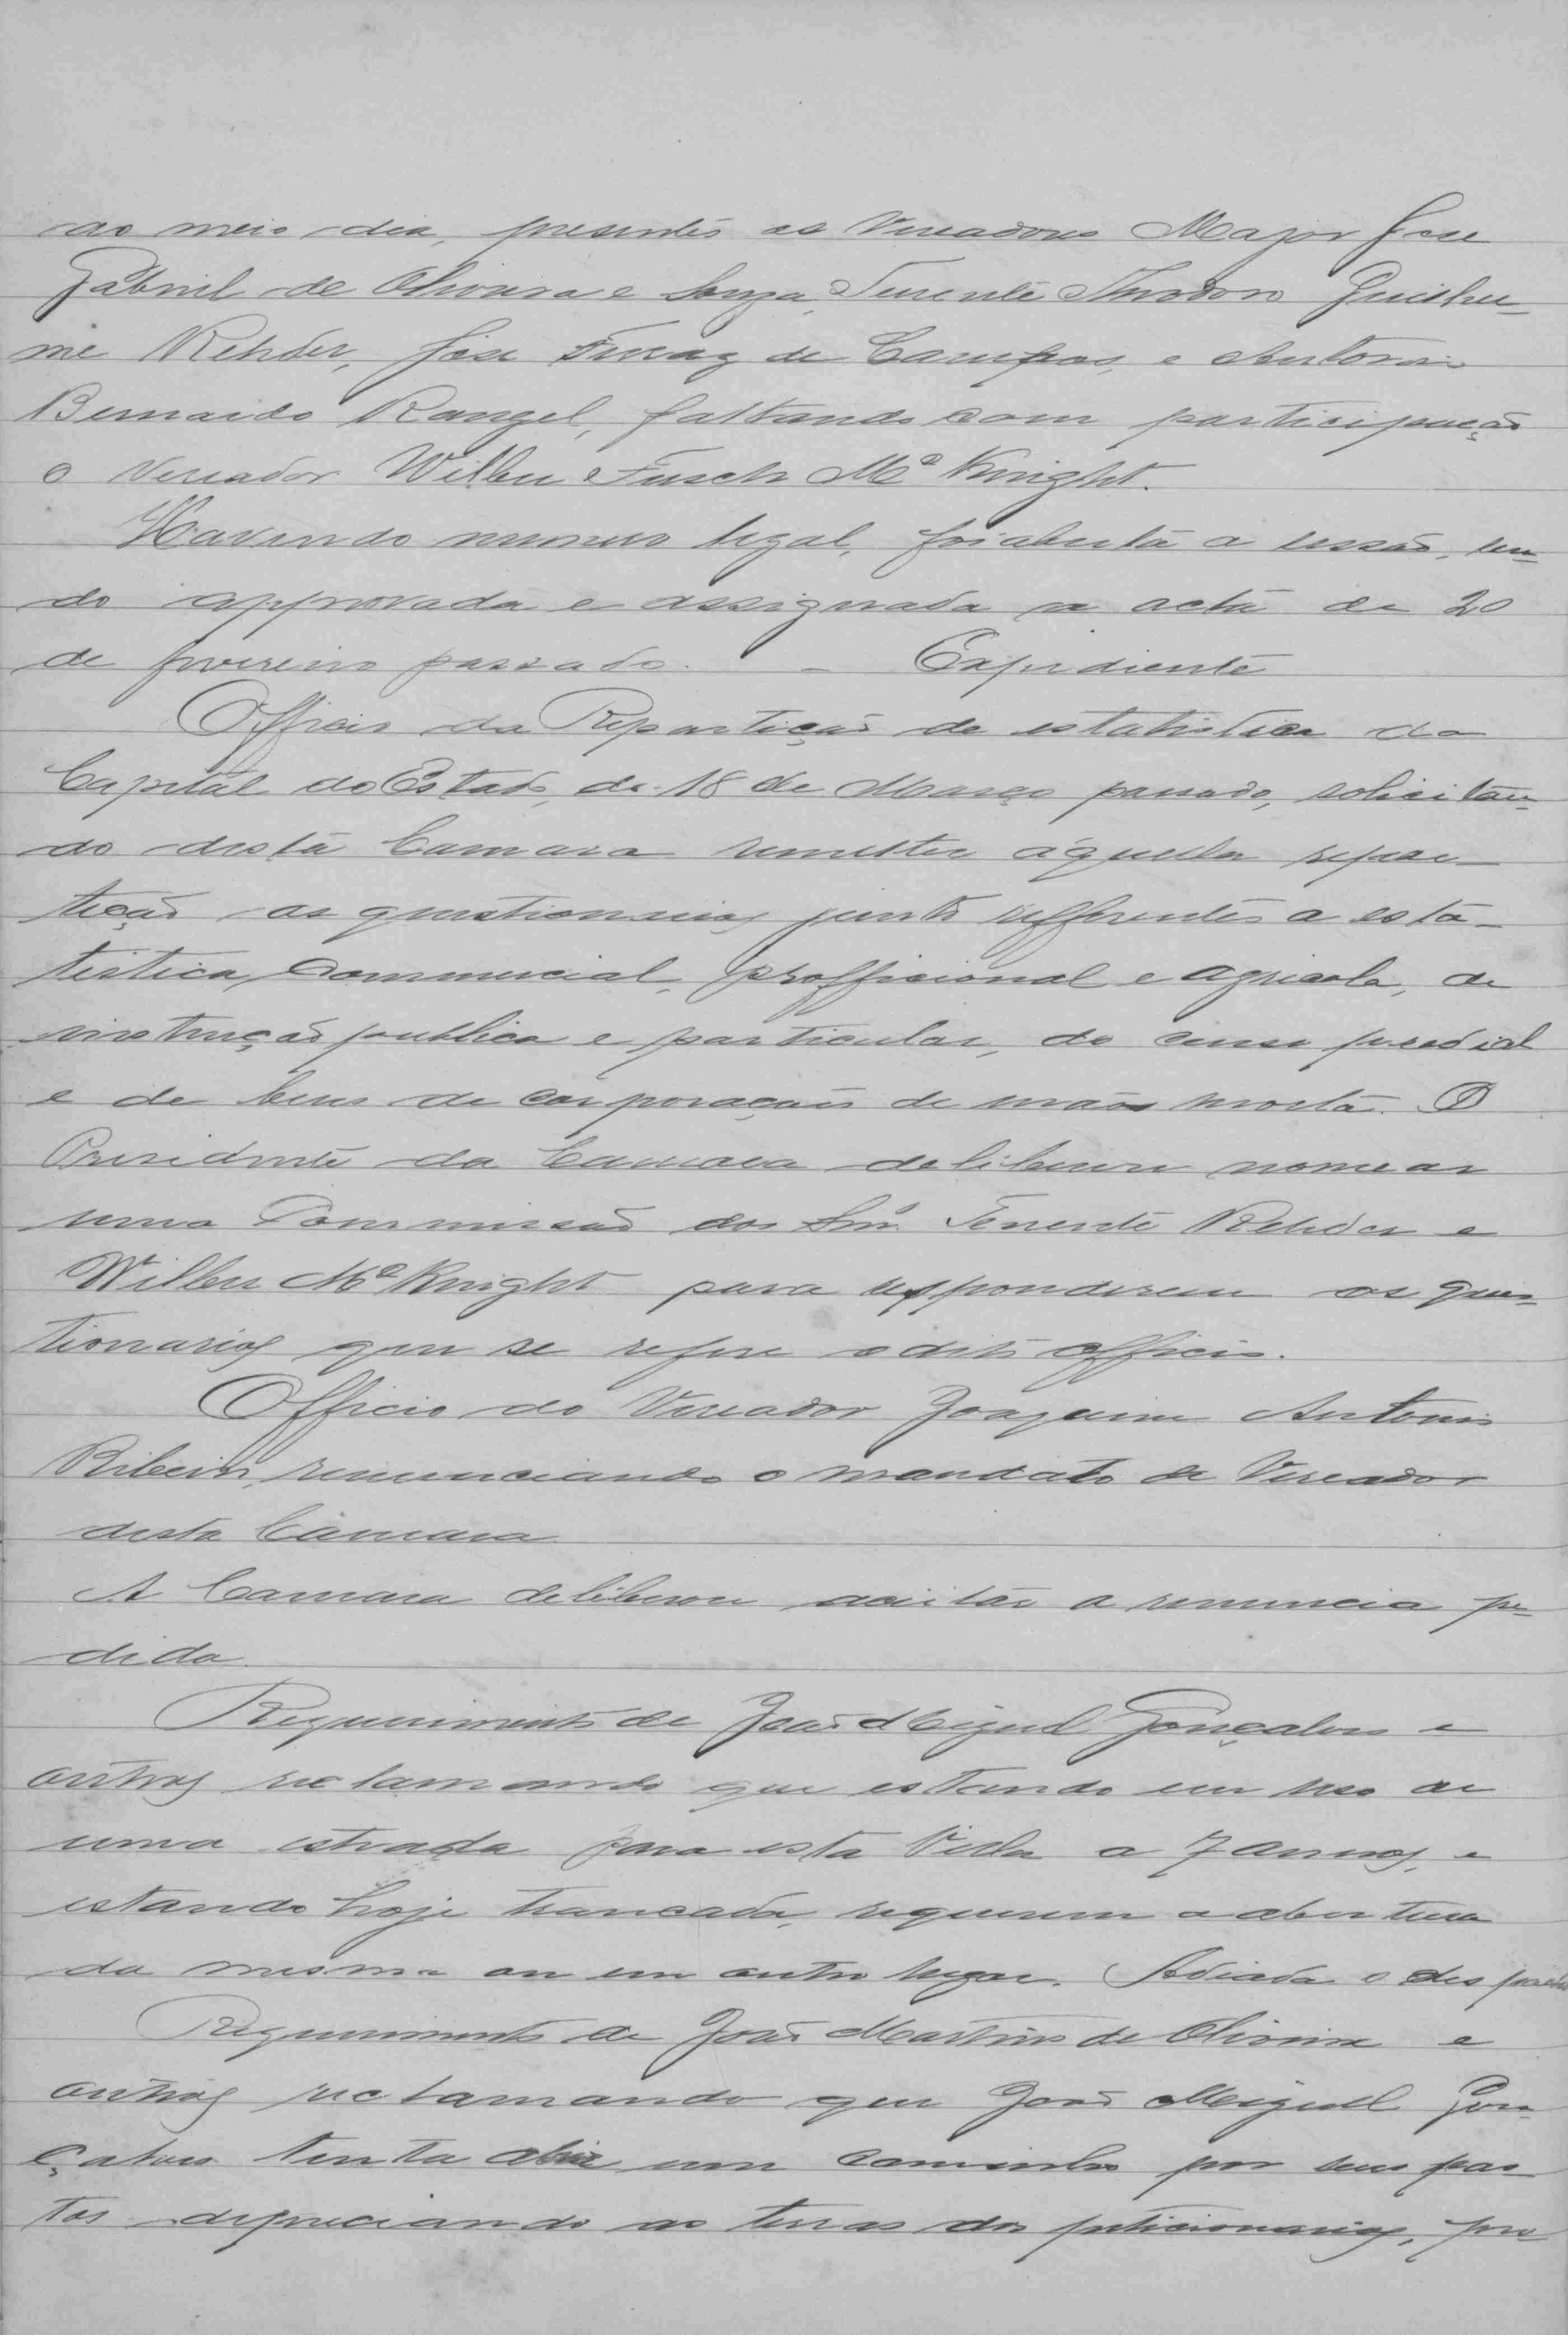 ao meio dia, presentes os Vereadores Major José
Gabriel de Oliveira e Souza, Tenente Theodoro Guilher-
me Rehder, José Ferraz de Campos, e Antonio
Bernardo Rangel, faltando com participação
o Vereador Wilber Fisch Mc Knight.
Havendo numero legal, foi aberta a sessão, sen-
do approvada e assignada a acta de 20
de fevereiro passado. - Expediente
Officio da Repartição de estatistica da
Capital do Estado, de 18 de Março passado, solicitan-
do desta Camara remetter áquella repar-
tição os questionarios junto refferentes a esta-
tistica commercial, profficional e agricola, de
instrucção publica e particular, do censo predial
e de bens de corporações de mãos morta. O
Presidente da Camara deliberou nomear
uma Commissão dos Snrs. Tenente Rehder e
Wilber Mc Knight para responderem os ques-
tionarios que se refere o dito officio.
Officio do Vereador Joaquim Antonio
Ribeiro, renunciando o mandato de Vereador
desta Camara
A Camara deliberou aceitar a renuncia pe-
dida.
Requerimento de João Miguel Gonçalves e
outros reclamando que estando em uso de
uma estrada para esta Villa a 7 annos, e
estando hoje trancada, requerem a abertura
da mesma ou em outro lugar. Adiada o despacho
Requerimento de João Martins de Oliveira e
outros reclamando que João Miguel Gon-
çalves tenta abrir um caminho por seus pas-
tos depreciando as terras dos peticionarios, pro